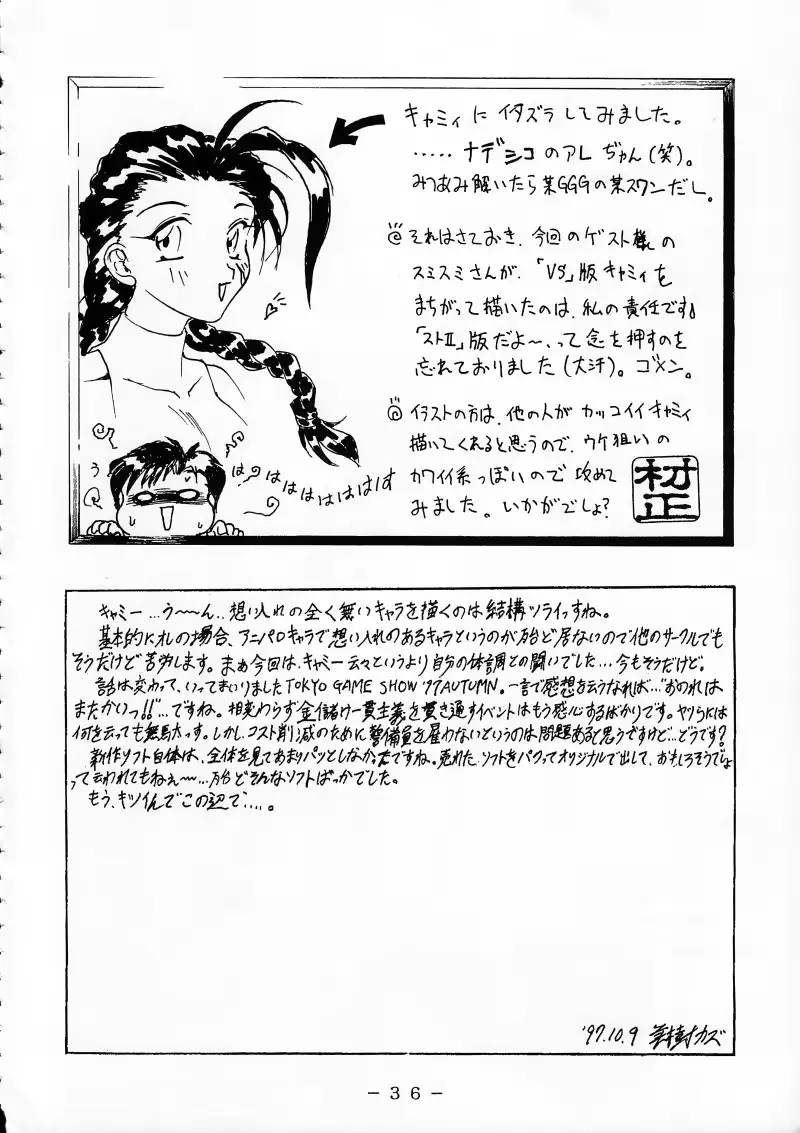 キャミィにイタズラしてみました。
‥‥‥ナデシコのアレぢゃん(笑)。
みつあみ解いたら某GGGの某スワンだし。
◎それはさておき、今回のゲスト様の
スミスミさんが、「VS」版キャミィを
まちがって描いたのは、私の責任です。
「ストⅡ」版だよ〜、って念を押すのを
忘れておりました(大汗)。ゴメン。
◎イラストの方は、他の人がカッコイイキャミィ
描いてくれると思うので、ウケ狙いの
カワイイ系っぽいので攻めて
みました。いかがでしょ?
村正
う
はははははははは
キャミー…う〜〜ん…想い入れの全く無いキャラを描くのは結構ツライっすね。
基本的にオレの場合、アニパロのキャラで想い入れのあるキャラというのが殆ど居ないので他のサークルでも
そうだけど苦労します。まぁ今回は、キャミー云々というより自分の体調との闘いでした…今もそうだけど。
話は変わって、いってまいりましたTOKYO GAME SHOW '97 AUTUMN。一言で感想を云うなれば…"おのれは
またかいっ!!"…ですね。相変わらず金儲け一貫主義を貫き通すイベントはもう感心するばかりです。ヤツらには
何を云っても無駄っす。しかし、コスト削減のために警備員を雇わないというのは問題あると思うですけど…どうです?
新作ソフト自体は、全体を見てあまりパッとしなかったですね。売れたソフトをパクってオリジナルで出して、おもしろそうでしょ
って云われてもねぇ〜〜…殆どそんなソフトばっかでした。
もう、キツイんでこの辺で…。
'97.10.9 カズ
-36-